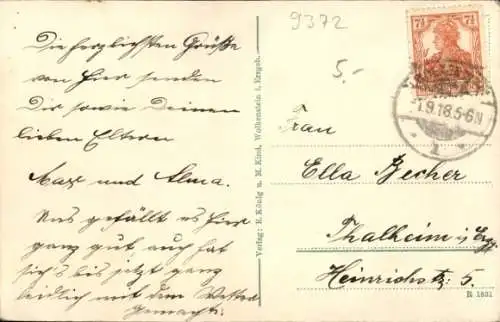 9372
5.-
7½ 7½
1.9.18.5-6N
Die herzlichsten Grüße
von hier senden
Dir sowie Deinen
lieben Eltern
Max und Alma.
Uns gefällt es hier
ganz gut, auch hat
sich's bis jetzt ganz
leidlich mit dem Wetter
gemacht.
Verlag: E. König u. M. Kind, Wolkenstein i. Erzgeb.
Frau
Ella Becher
Thalheim i. Erzg.
Heinrichstr. 5.
R 1831